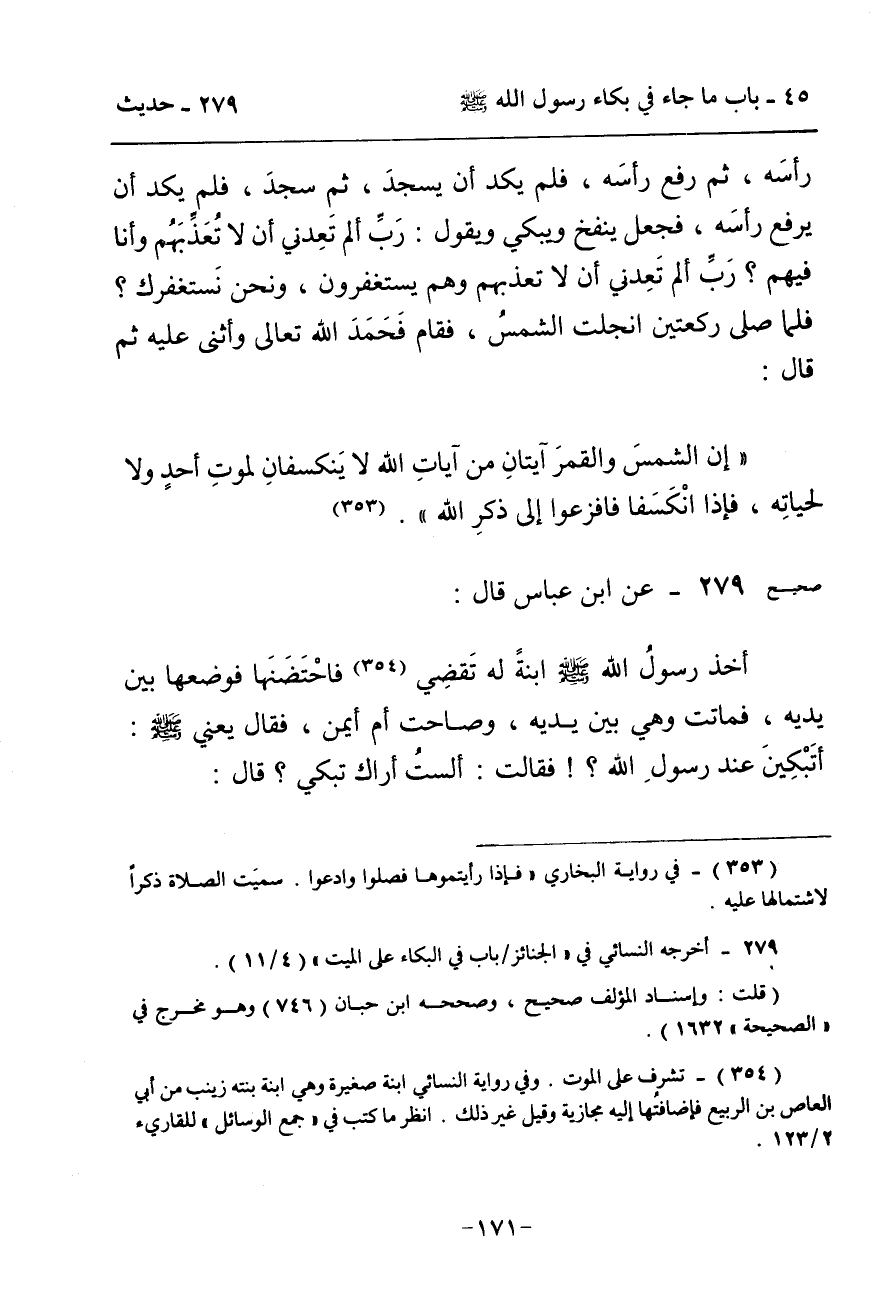 ٤٥ ـ باب ما جاء في بكاء رسول الله ﷺ ٢٧٩ ـ حديث
رأسَه ، ثم رفع رأسَه ، فلم يكد أن يسجدَ ، ثم سجدَ ، فلم يكد أن
يرفع رأسَه ، فجعل ينفخ ويبكي ويقول : رَبِّ ألم تَعِدني أن لا تُعَذِّبَهُم وأنا
فيهم ؟ رَبِّ ألم تَعِدني أن لا تعذبهم وهم يستغفرون ، ونحن نَستغفرك ؟
فلما صلى ركعتين انجلت الشمسُ ، فقام فَحَمَدَ الله تعالى وأثنى عليه ثم
قال :
« إن الشمسَ والقمرَ آيتانِ من آياتِ الله لا يَنكسفانِ لموتِ أحدٍ ولا
لحياتِه ، فإذا انْكَسَفا فافزعوا إلى ذكرِ الله » . (٣٥٣)
صحيـح ٢٧٩ ـ عن ابن عباس قال :
أخذ رسولُ الله ﷺ ابنةً له تَقضِي (٣٥٤) فاحْتَضَنَها فوضعها بين
يديه ، فماتت وهي بين يـديه ، وصـاحت أم أيمن ، فقال يعني ﷺ :
أتَبْكِينَ عند رسولِ الله ؟ ! فقالت : ألستُ أراك تبكي ؟ قال :
(٣٥٣) ـ في روايـة البخاري « فـإذا رأيتموهـا فصلوا وادعوا . سميَت الصـلاة ذكراً
لاشتمالها عليه .
٢٧٩ ـ أخرجه النسائي في « الجنائز/باب في البكاء على الميت » (١١/٤) .
(قلت : وإسنـاد المؤلف صحيـح ، وصححـه ابن حبـان (٧٤٦) وهـو مخـرج في
« الصحيحة » ١٦٣٢) .
(٣٥٤) ـ تشرف على الموت . وفي رواية النسائي ابنة صغيرة وهي ابنة بنته زينب من أبي
العاص بن الربيع فإضافتُها إليه مجازية وقيل غير ذلك . انظر ما كتب في « جمع الوسائل » للقاريء
١٢٣/٢ .
-١٧١-